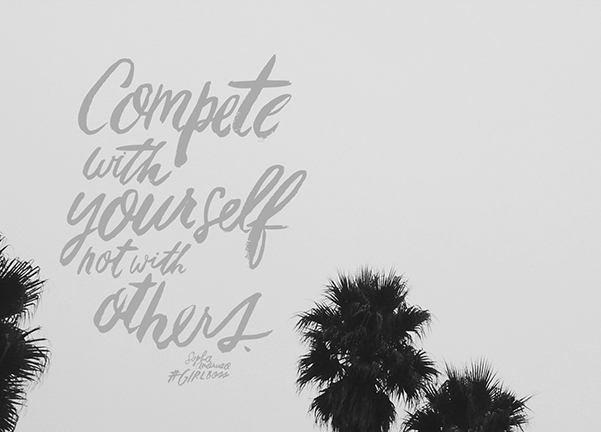 Compete
with
yourself
not with
others.
Sophia
Amoruso
#GIRLBOSS